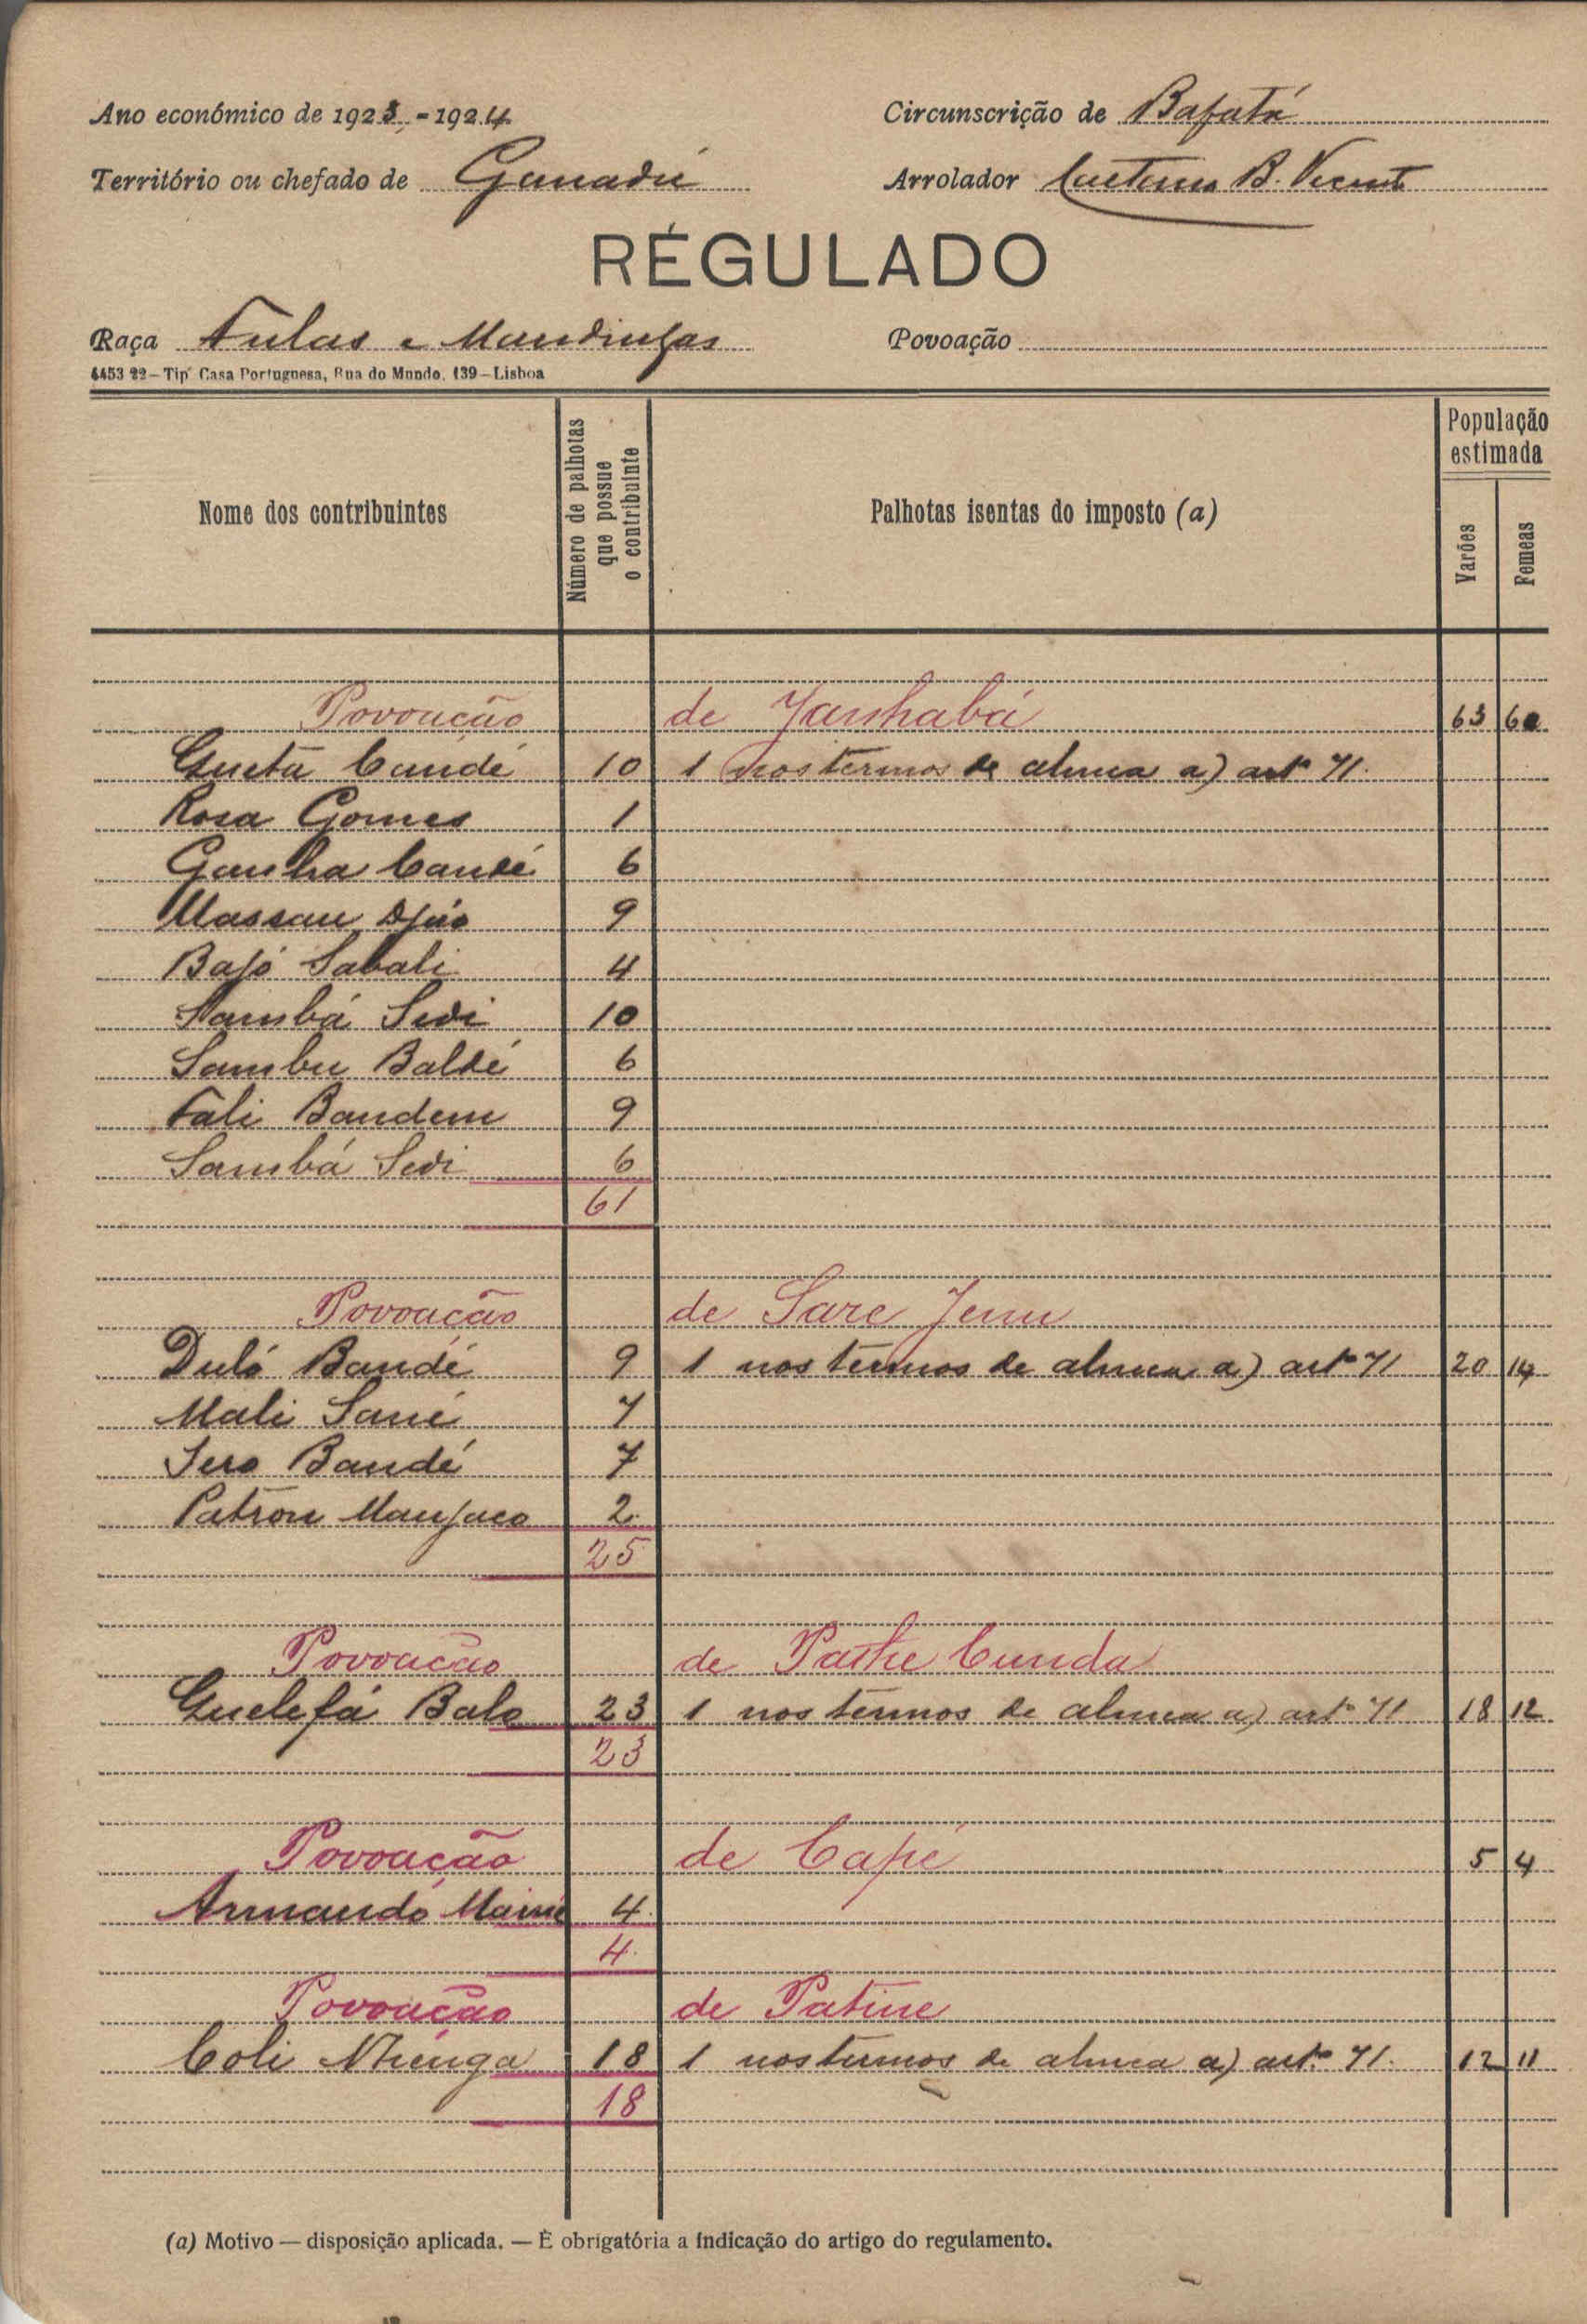 Ano económico de 1923-1924 Circunscrição de Bafatá
Território ou chefado de Ganadú Arrolador B. Vicente
RÉGULADO
Raça Fulas e Mandingas Povoação
4453 22 – Tip. Casa Portuguesa, Rua do Mundo, 139 – Lisboa
Nome dos contribuintes Número de palhotas que possue o contribuinte Palhotas isentas do imposto (a) População estimada
Varões Femeas
Povoação de Janhabá 63 60
Gueta Candé 10 1 nos termos de alinea a) artº 71.
Rosa Gomes 1
Ganha Candé 6
Massau Djáo 9
Bajó Sabali 4
Sambá Sidi 10
Sambu Baldé 6
Fali Bandem 9
Sambá Sidi 6
61
Povoação de Sare
Duló Bandé 9 1 nos termos de alinea a) artº 71 20 14
Mali Sané 7
Sero Bandé 7
Patron Manjaco 2
25
Povoação de Cunda
Guelefá Balo 23 1 nos termos de alinea a) artº 71 18 12
23
Povoação de Capé 5 4
Armando Mainé 4
4
Povoação de Patine
Coli 18 1 nos termos de alinea a) artº 71. 12 11
18
(a) Motivo — disposição aplicada. — É obrigatória a indicação do artigo do regulamento.